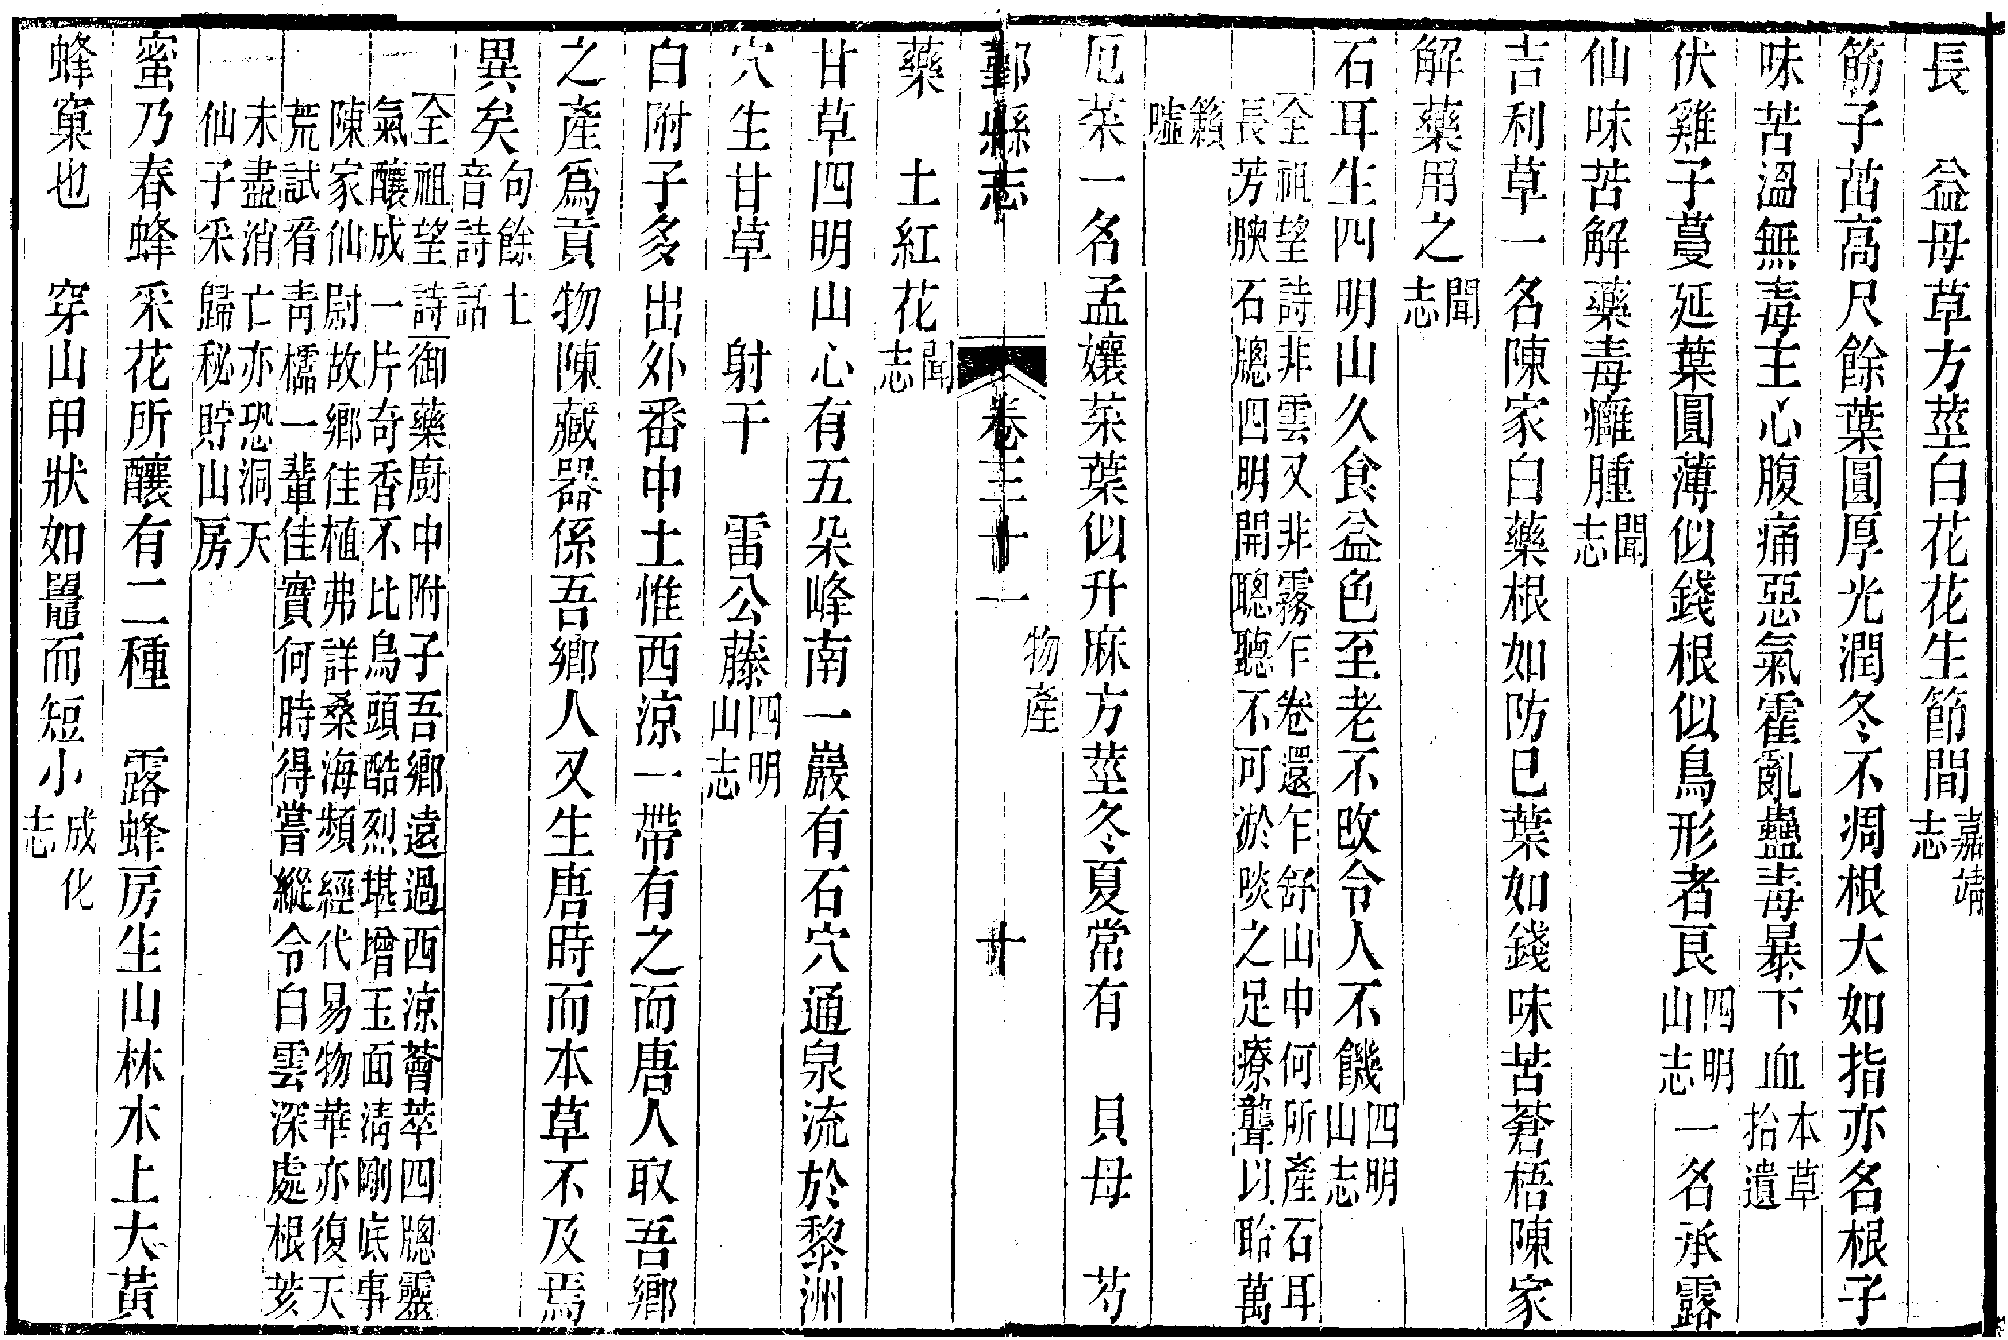 長　益母草方莖白花花生節間嘉靖志
筋子苗高尺餘葉圓厚光潤冬不凋根大如指亦名根子
味苦溫無毒主心腹痛惡氣霍亂蠱毒暴下血本草拾遺
伏雞子蔓延葉圓薄似錢根似鳥形者良四明山志一名承露
仙味苦解藥毒癰腫聞志
吉利草一名陳家白藥根如防已葉如錢味苦蒼梧陳家
解藥用之聞志
石耳生四明山久食益色至老不改令人不饑四明山志
全祖望詩非雲又非霧乍卷還乍舒山中何所產石耳
長芳腴石牕四明開聰聽不可淤啖之足療聾以聆萬
籟噓
卮茱一名孟孃茱葉似升麻方莖冬夏常有　貝母　芍
鄞縣志　卷三十一　物產　十
藥　土紅花聞志
甘草四明山心有五朵峰南一巖有石穴通泉流於黎洲
穴生甘草　射干　雷公藤四明山志
白附子多出外番中土惟西涼一帶有之而唐人取吾鄉
之產爲貢物陳藏器係吾鄉人又生唐時而本草不及焉
異矣句餘土音詩話
全祖望詩御藥廚中附子吾鄉遠過西涼薈萃四牕靈
氣釀成一片奇香不比烏頭酷烈堪增玉面清剛底事
陳家仙尉故鄉佳植弗詳桑海頻經代易物華亦復天
荒試看青櫺一輩佳實何時得嘗縱令白雲深處根荄
未盡消亡亦恐洞天
仙子采歸秘貯山房
蜜乃春蜂采花所釀有二種　露蜂房生山林木上大黃
蜂窠也　穿山甲狀如鼉而短小成化志